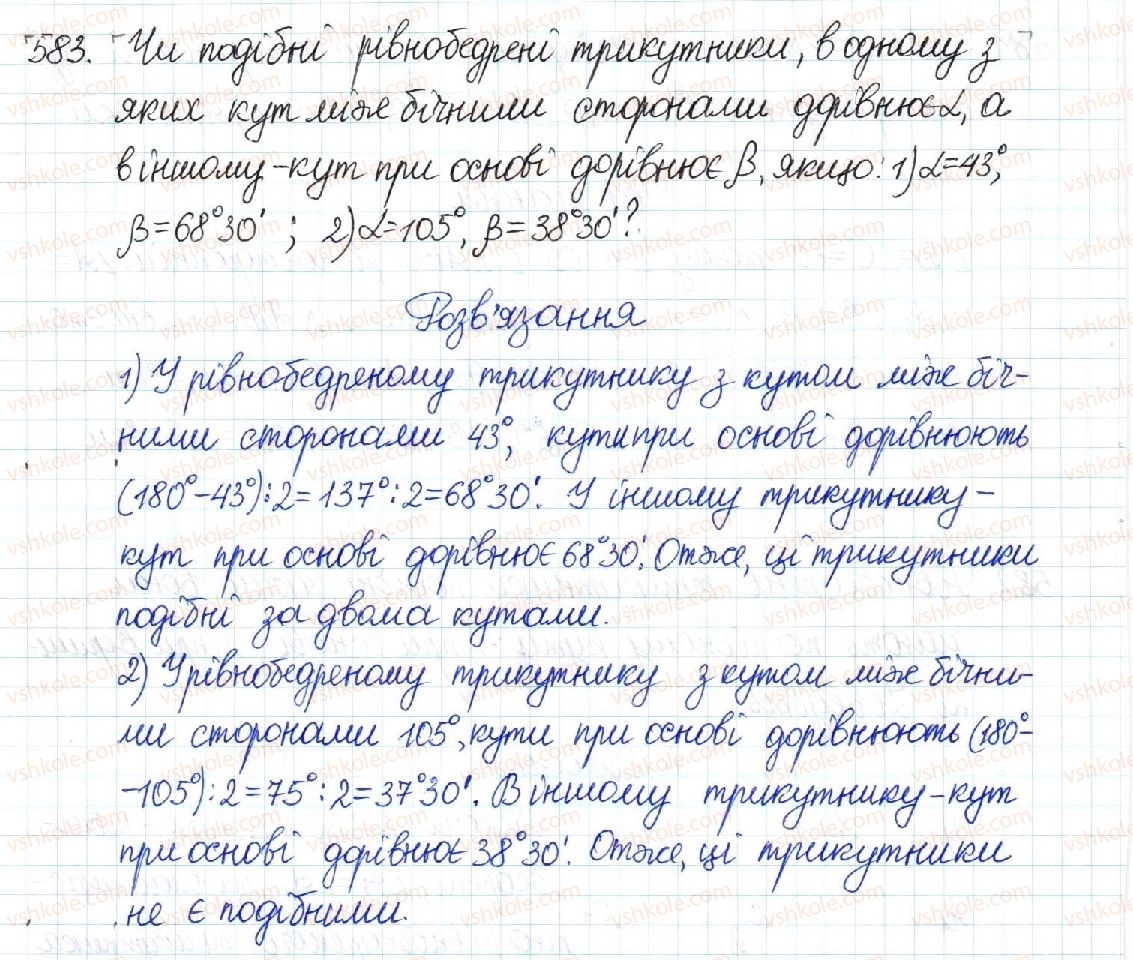 583. Чи подібні рівнобедрені трикутники, в одному з
яких кут між бічними сторонами дорівнює α, а
в іншому - кут при основі дорівнює β, якщо: 1) α=43°,
β=68°30' ; 2) α=105°, β=38°30'?
Розв'язання
1) У рівнобедреному трикутнику з кутом між біч-
ними сторонами 43°, кути при основі дорівнюють
(180°-43°):2=137°:2=68°30'. У іншому трикутнику -
кут при основі дорівнює 68°30'. Отже, ці трикутники
подібні за двома кутами.
2) У рівнобедреному трикутнику з кутом між бічни-
ми сторонами 105°, кути при основі дорівнюють (180°-
-105°):2=75°:2=37°30'. В іншому трикутнику - кут
при основі дорівнює 38°30'. Отже, ці трикутники
не є подібними.